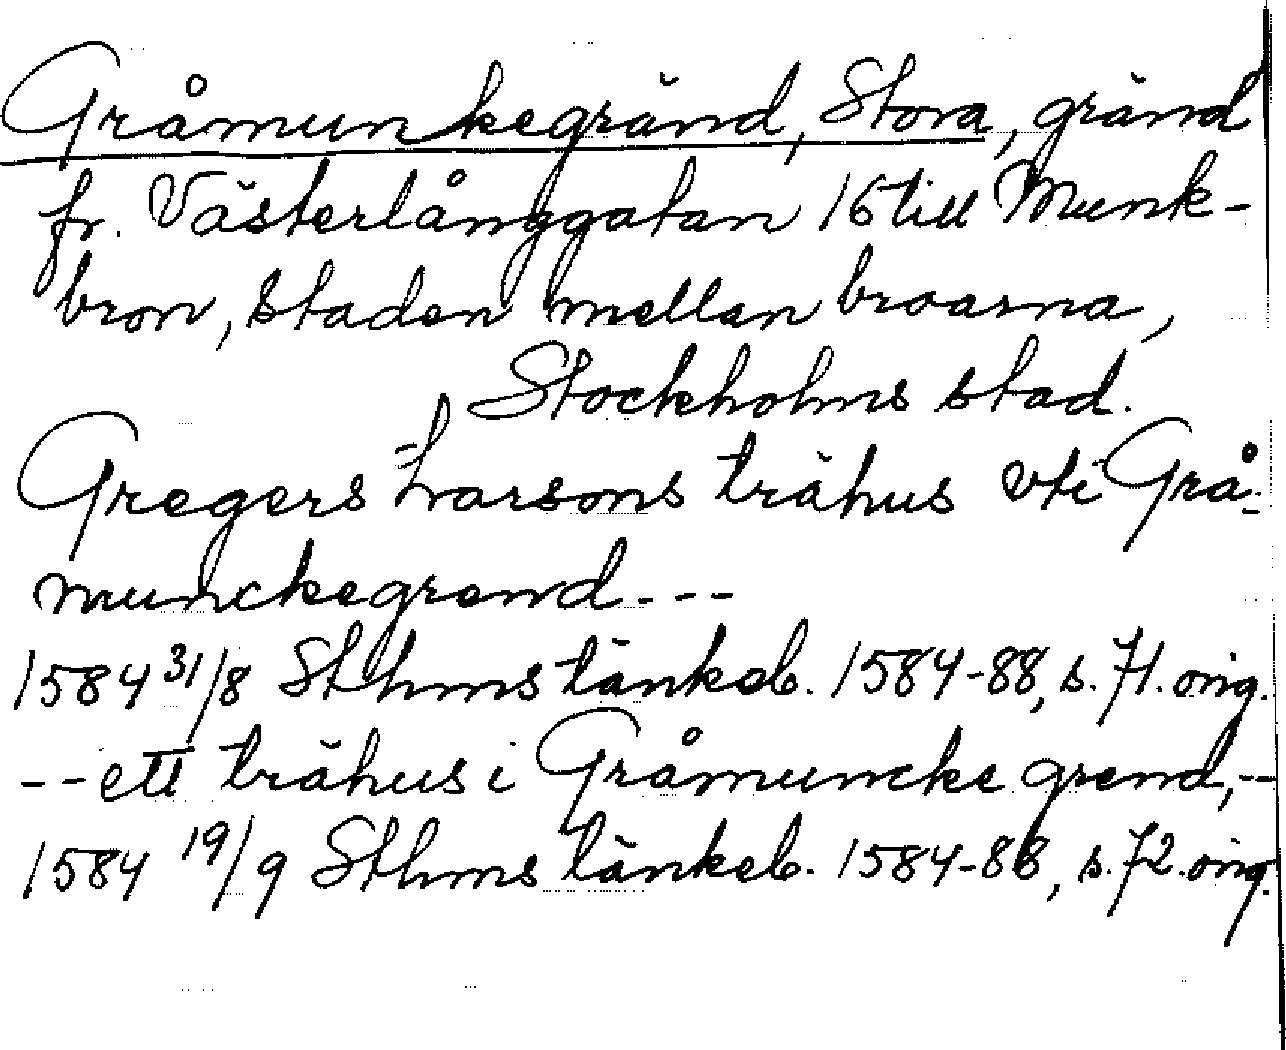 Gråmunkegränd, Stora, gränd
fr. Västerlånggatan 16 till Munk-
bron, staden mellan broarna,
Stockholms stad.
Gregers Ivarsons trähus vti Grå-
munckegrend---
1584 31/8 Sthms tänkeb. 1584-88, s. 71. orig.
--ett trähus i Gråmuncke grend,--
1584 19/9 Sthms tänkeb. 1584-88, s. 72. orig.